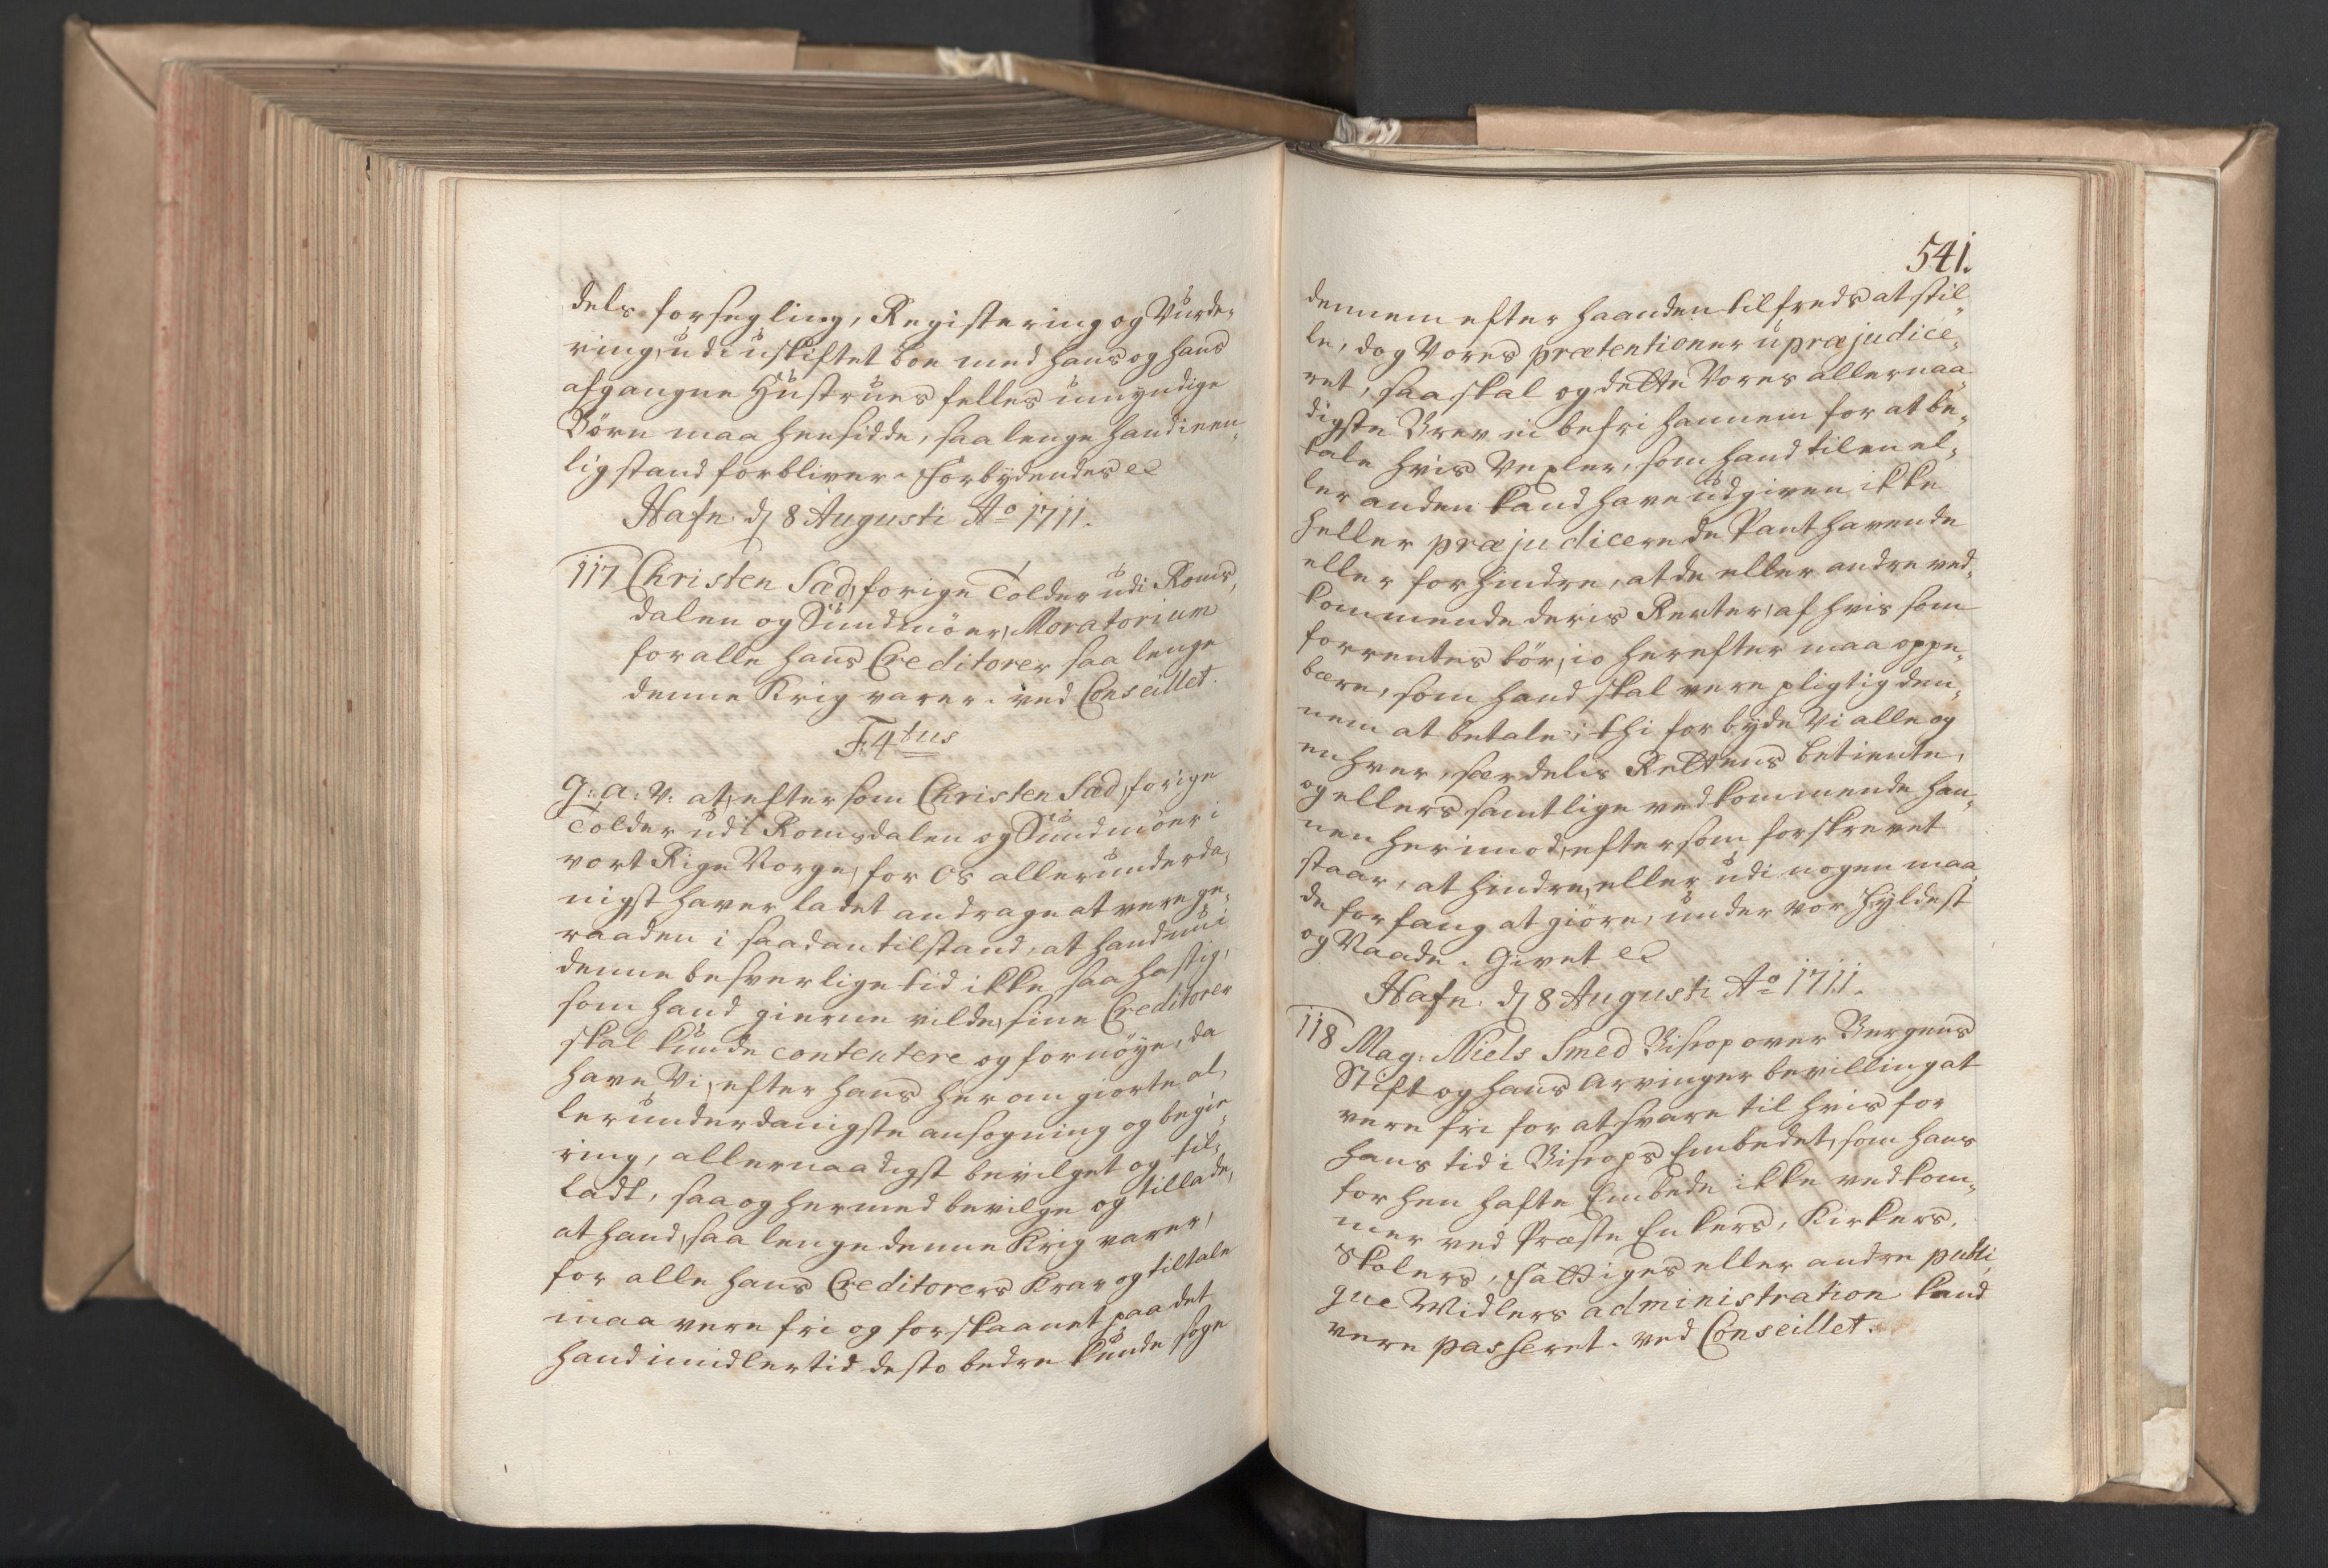 dels forsegling, Registering og Vurde,
ring, udi uskiftet boe med hans og hans
afgangne Hustrues felles umyndige
Börn maa hensidde, saa lenge hand i een,
lig stand forbliver. Forbydendes etc
Hafn: d. 8 Augusti Ao 1711.
117 Christen Sæd, forige Tolder udi Roms,
dalen og Sundmöer, Moratorium
for alle hans Creditorer saa lenge
denne Krig varer. ved Conseillet.
F: 4tus
G: a: V: at, eftersom Christen Sæd, forige
Tolder udi Romsdalen og Sundmöer i
vort Rige Norge, for Os allerunderda,
nigst haver ladet andrage at vere ge,
raaden i saadan tilstand, at hand nu i
denne besverlige tid ikke saa hastig,
som hand gierne vilde, sine Creditorer
skal kunde contentere og fornöye, da
have Vi, efter hans herom giorte al,
lerunderdanigste ansogning og begie,
ring, allernaadigst bevilget og til,
ladt, saa og hermed bevilge og tillade,
at hand, saa lenge denne Krig varer,
for alle hans Creditorers Krav og tiltale
maa vere fri og forskaanet paa det
hand imidlertid desto bedre kunde soge
541.
dennem efter haanden tilfreds at stil,
le, dog Vores prætentioner upræjudice,
ret, saa skal og dette Vores allernaa,
digste Brev ei befri hannem for at be,
tale hvis Vexler, som hand til en el,
ler anden kand have udgiven ikke
heller præjudicere de Panthavende
eller forhindre, at de eller andre ved,
kommende deris Renter, af hvis som
forrentes bör, io herefter maa oppe,
bære, som hand skal vere pligtig den,
nem at betale; thi forbyde Vi alle og
enhver, særdelis Rettens betiente,
og ellers samtlige vedkommende han,
nem herimod, eftersom forskrevet
staar, at hindre, eller udi nogen maa,
de forfang at giöre, under vor Hyldest
og Naade. Givet etc
Hafn: d. 8 Augusti Ao 1711.
118 Mag: Niels Smed Biscop over Bergens
Stift og hans Arvinger bevilling at
vere fri for at svare til hvis for
hans tid i Biscops Embedet, som hans
forhen hafte Embede ikke vedkom,
mer ved Præste Enkers, Kirkers,
Skolers, Fattiges eller andre publi,
que Midlers administration kand
vere passeret. ved Conseillet.